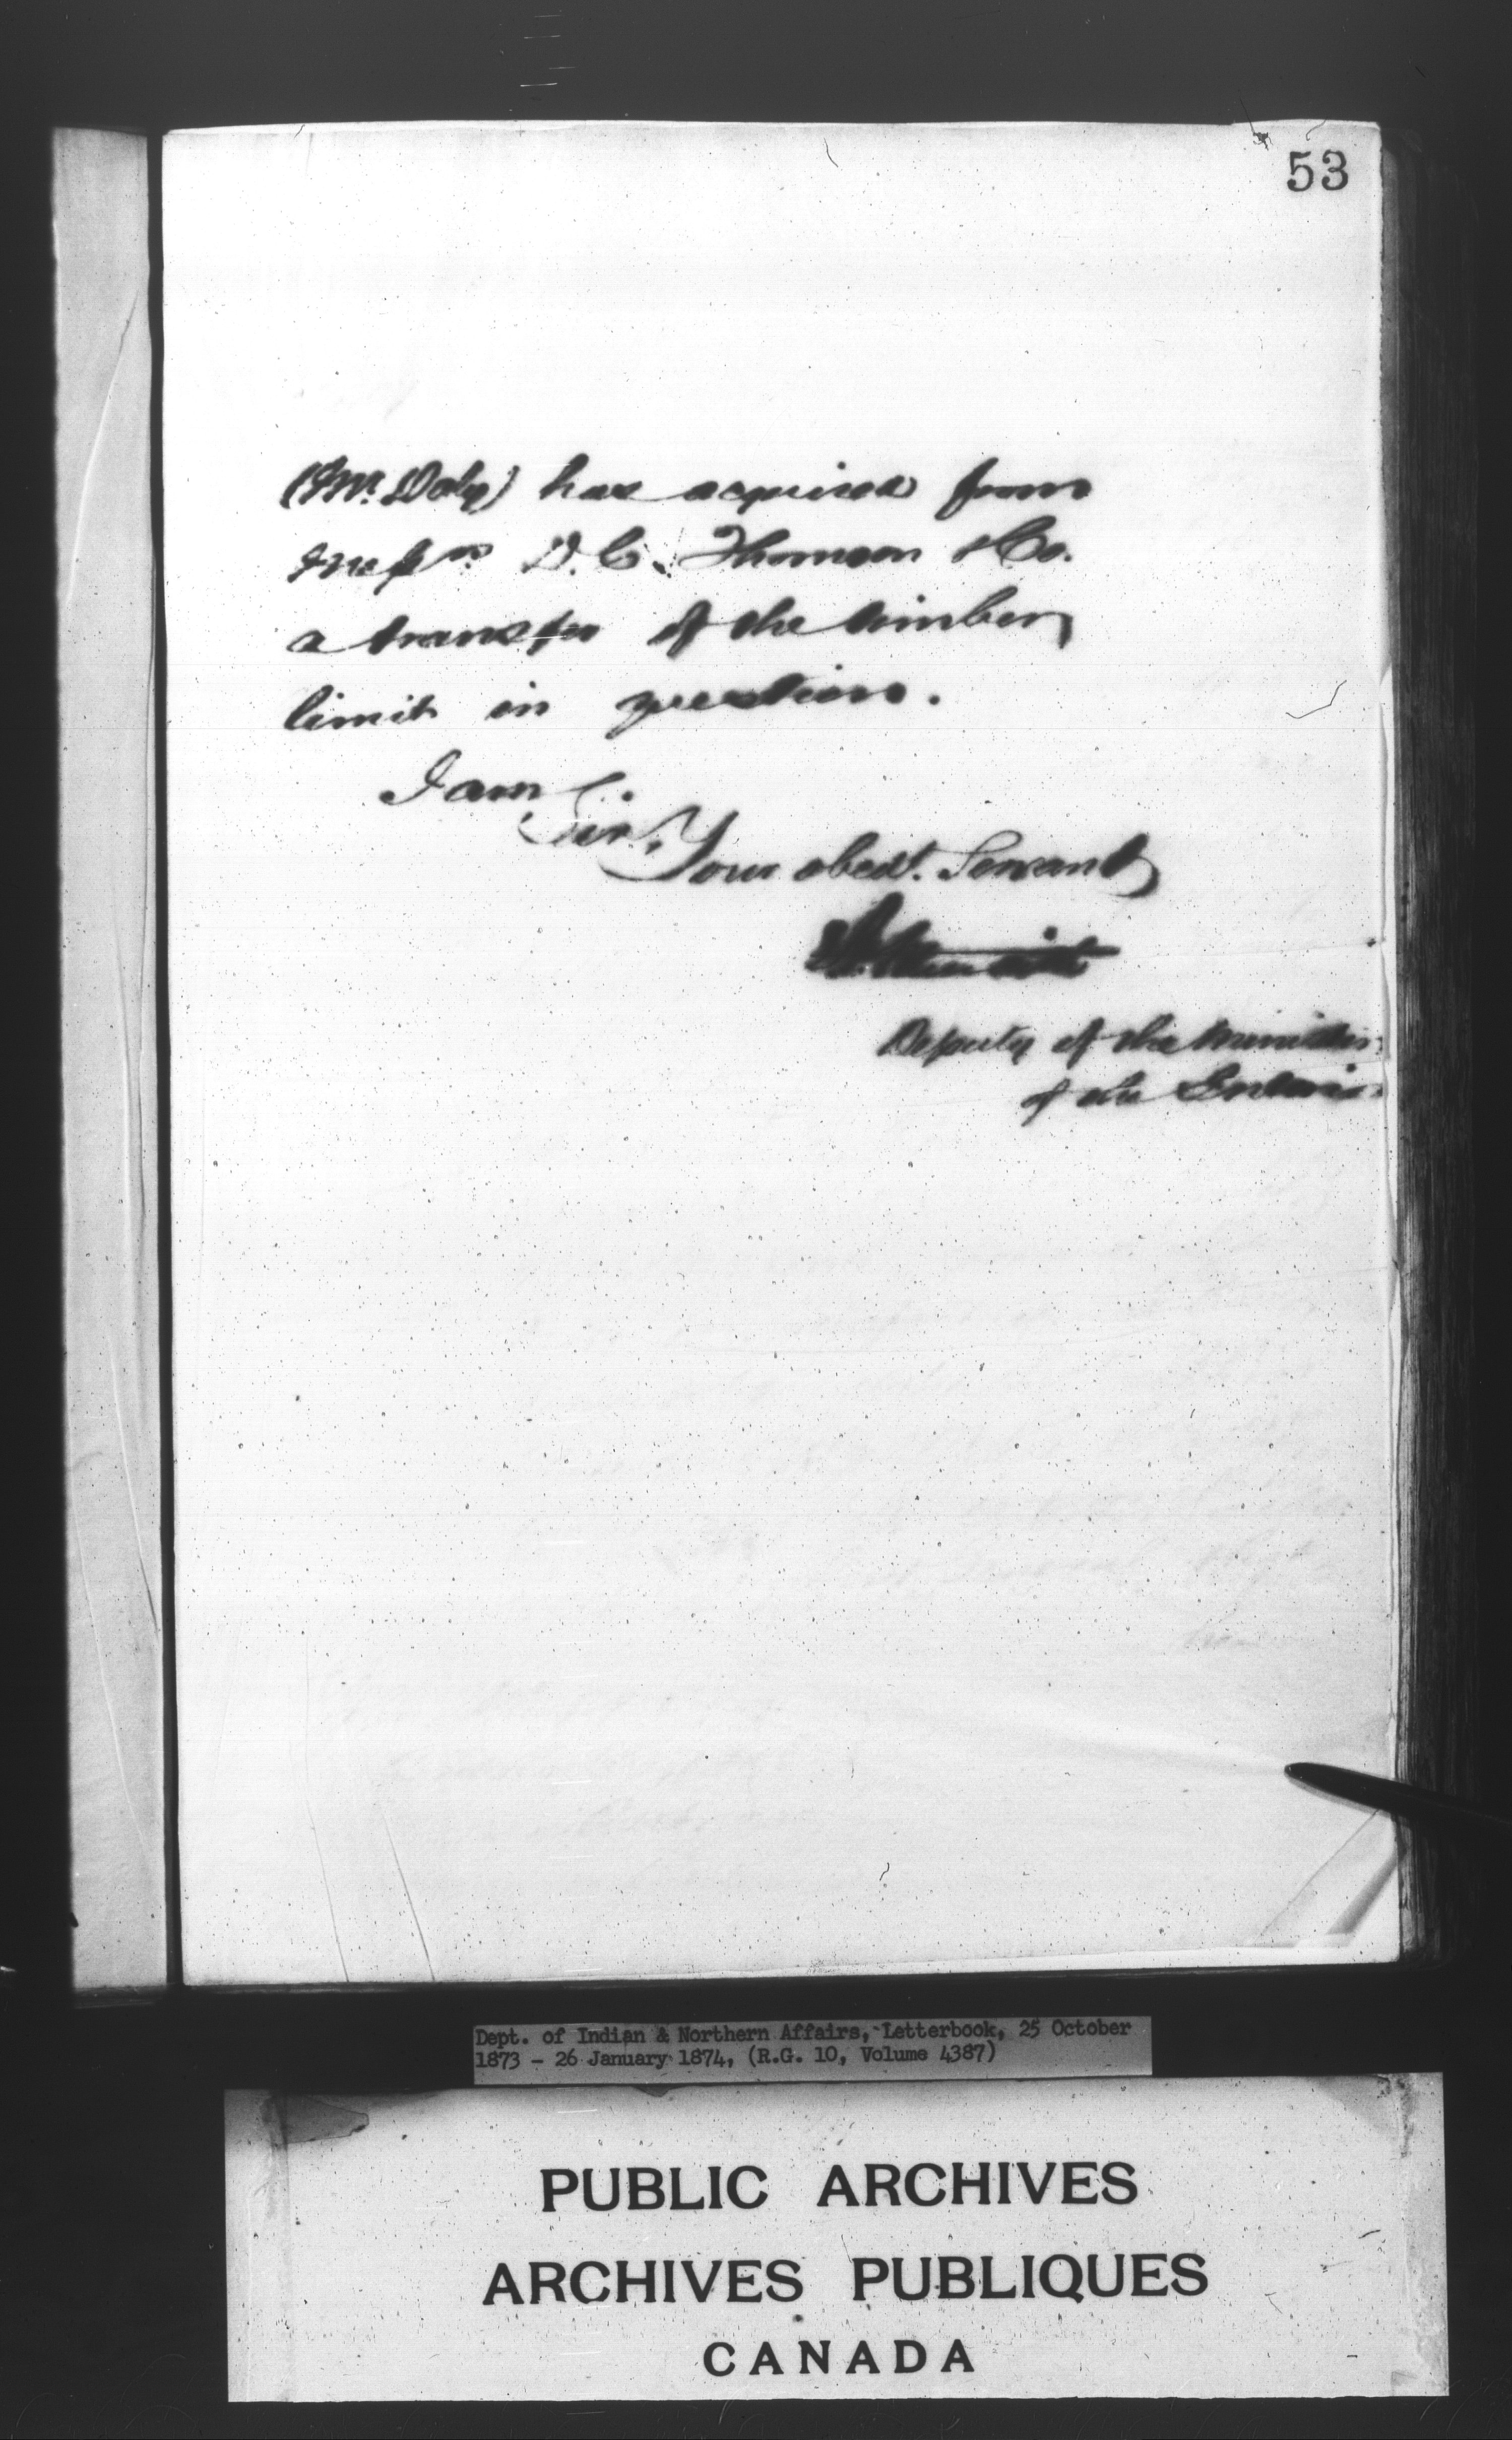 53
(Mr. Daly) has acquired from
Messrs. D. C. Thomson & Co.
a transfer of the timber
limit in question.
I am
Sir,
Your obedt. Servant
Deputy of the Minister
of the Interior
Dept. of Indian & Northern Affairs, Letterbook, 25 October
1873 - 26 January 1874, (R.G. 10, Volume 4387)
PUBLIC ARCHIVES
ARCHIVES PUBLIQUES
CANADA